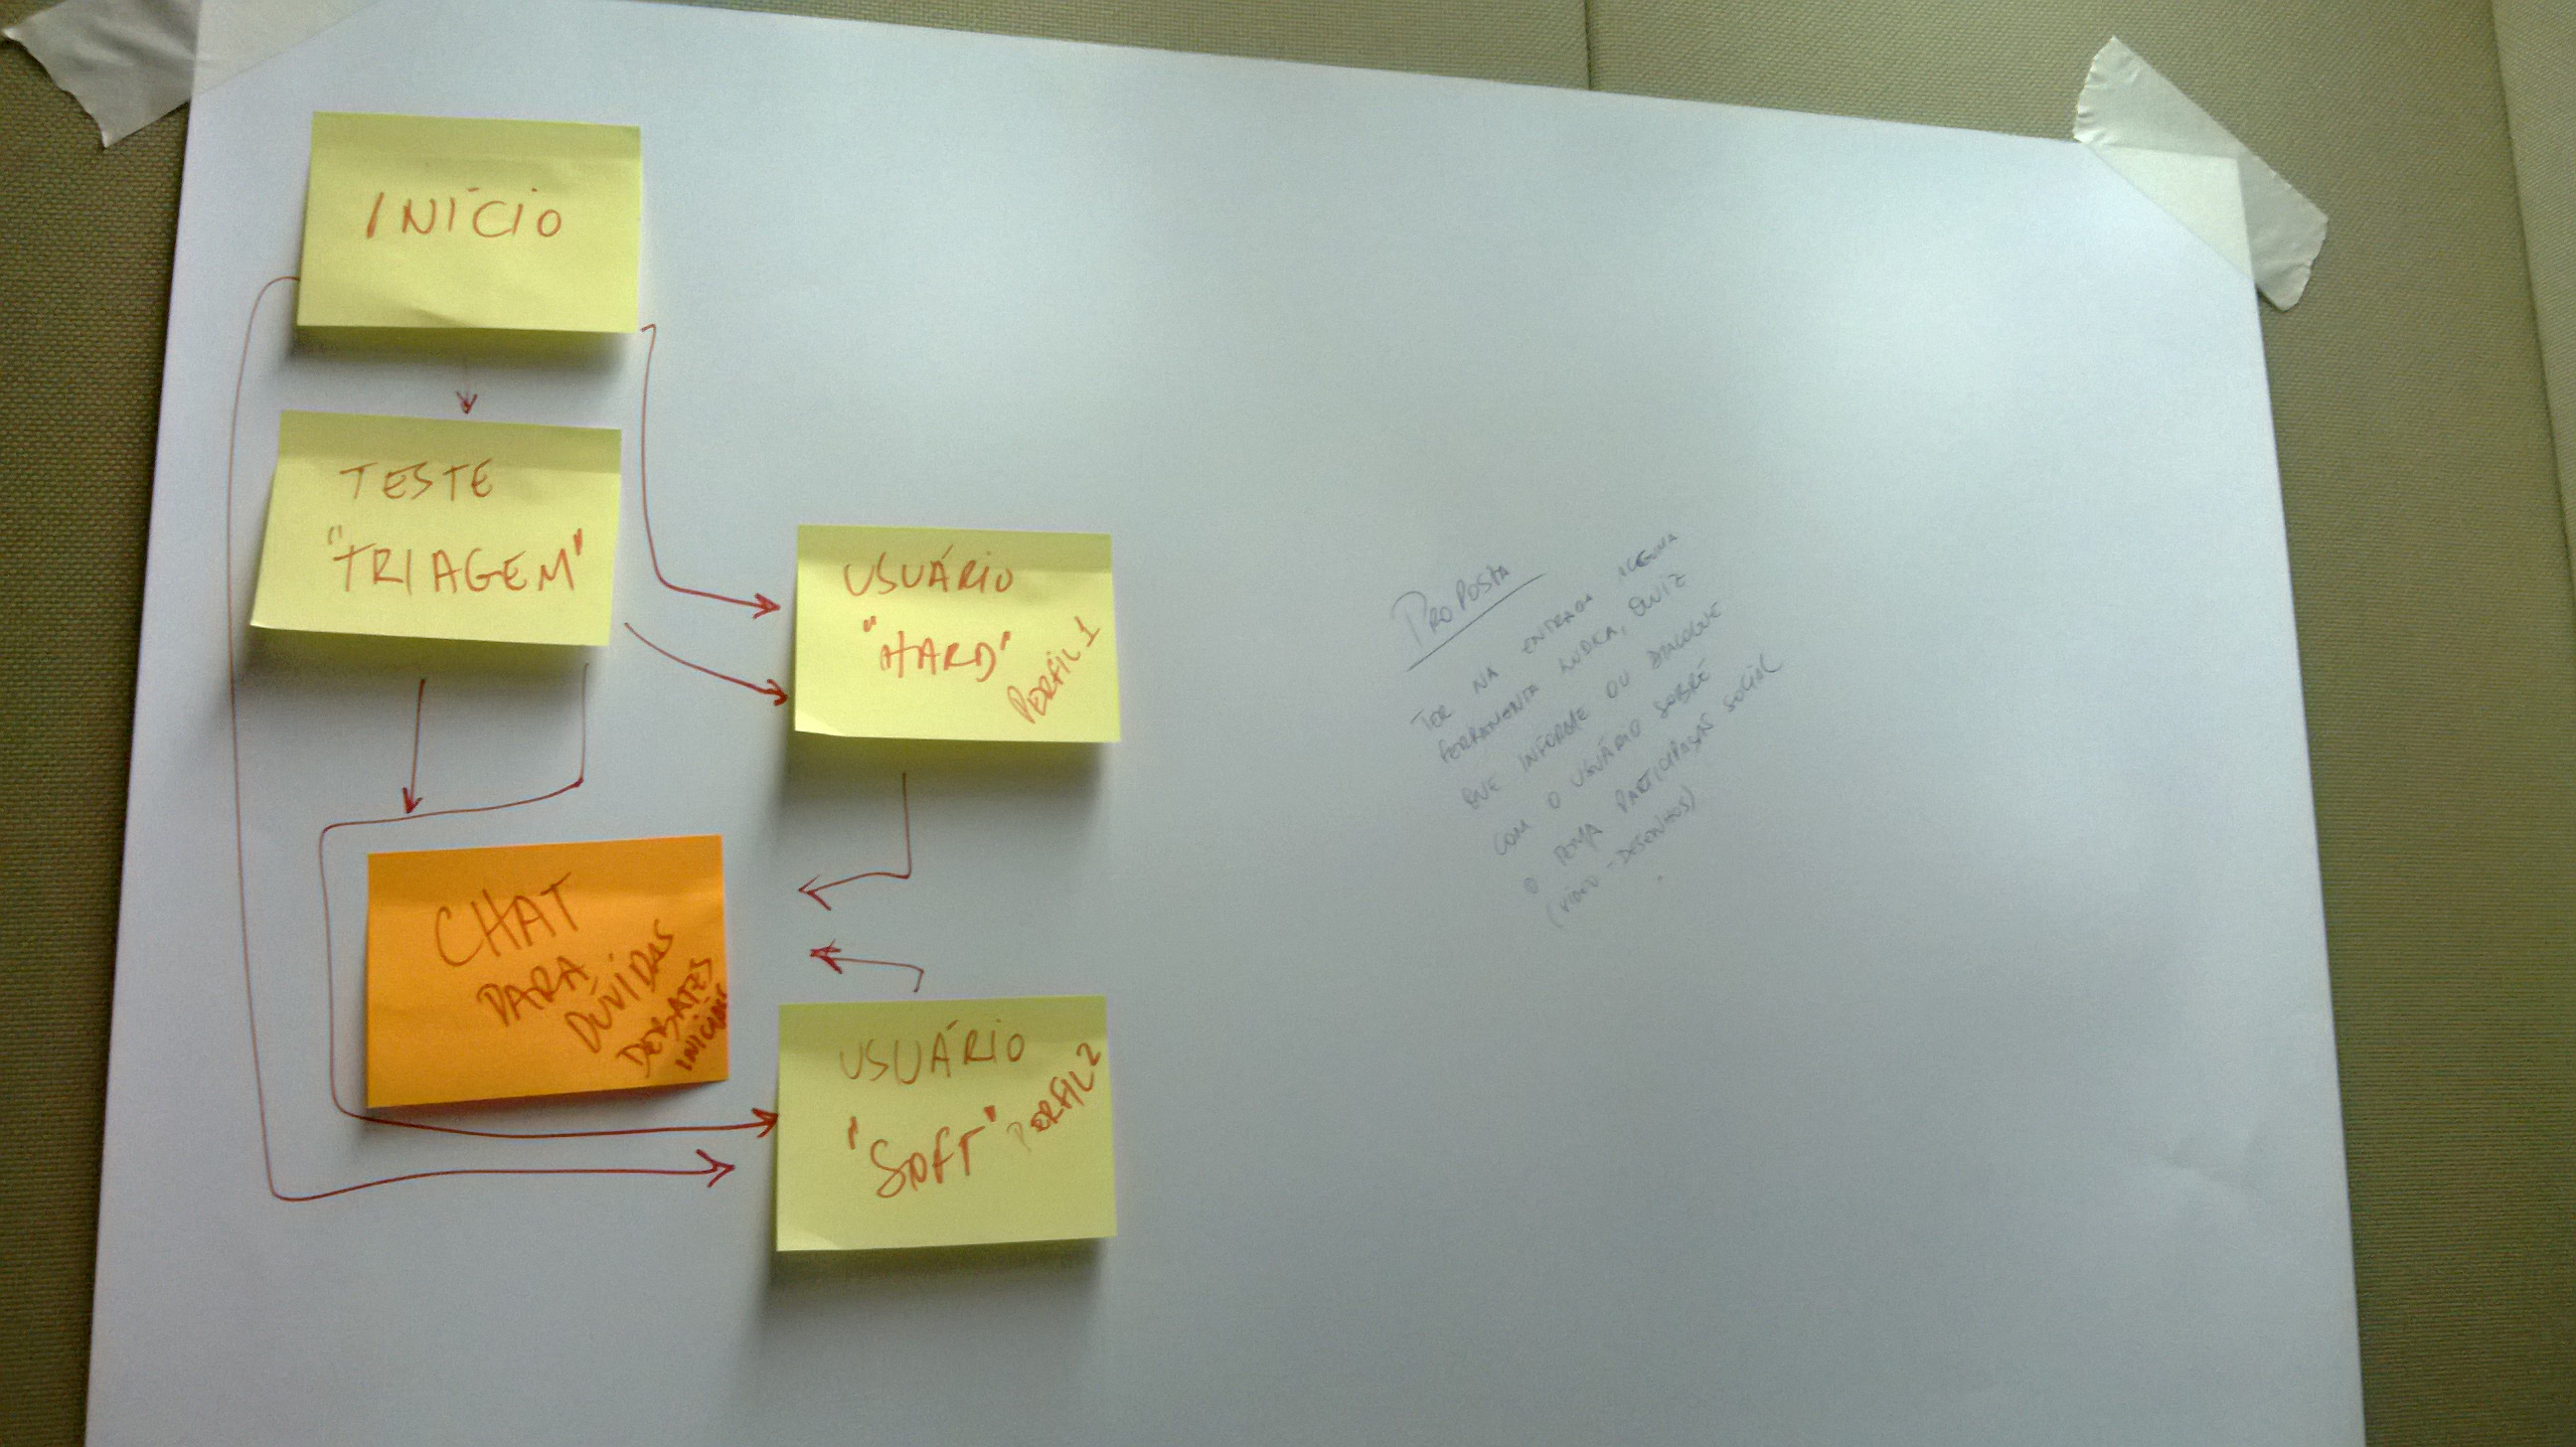 INÍCIO
TESTE
"TRIAGEM"
USUÁRIO
"HARD"
PERFIL 1
CHAT
PARA
DÚVIDAS
DEBATES
INICIAIS
USUÁRIO
"SOFT"
PERFIL 2
PROPOSTA
TER NA ENTRADA ALGUMA
FERRAMENTA LÚDICA, QUIZ
QUE INFORME OU DIALOGUE
COM O USUÁRIO SOBRE
O TEMA PARTICIPAÇÃO SOCIAL
(VÍDEO - DESENHOS)